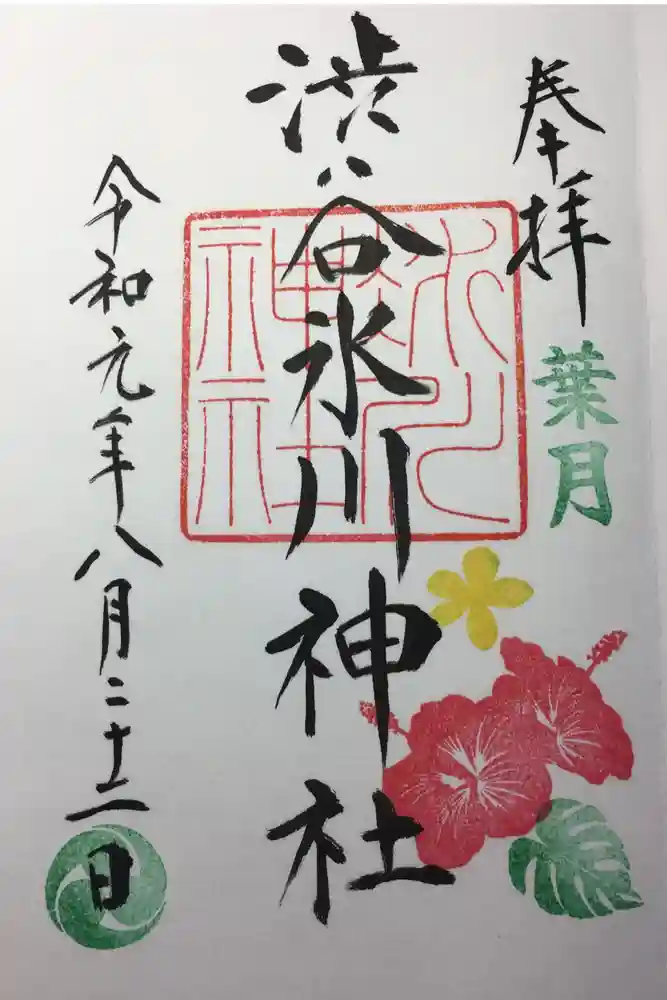 奉拝
葉月
渋谷氷川神社
氷川
神社
令和元年八月二十二日